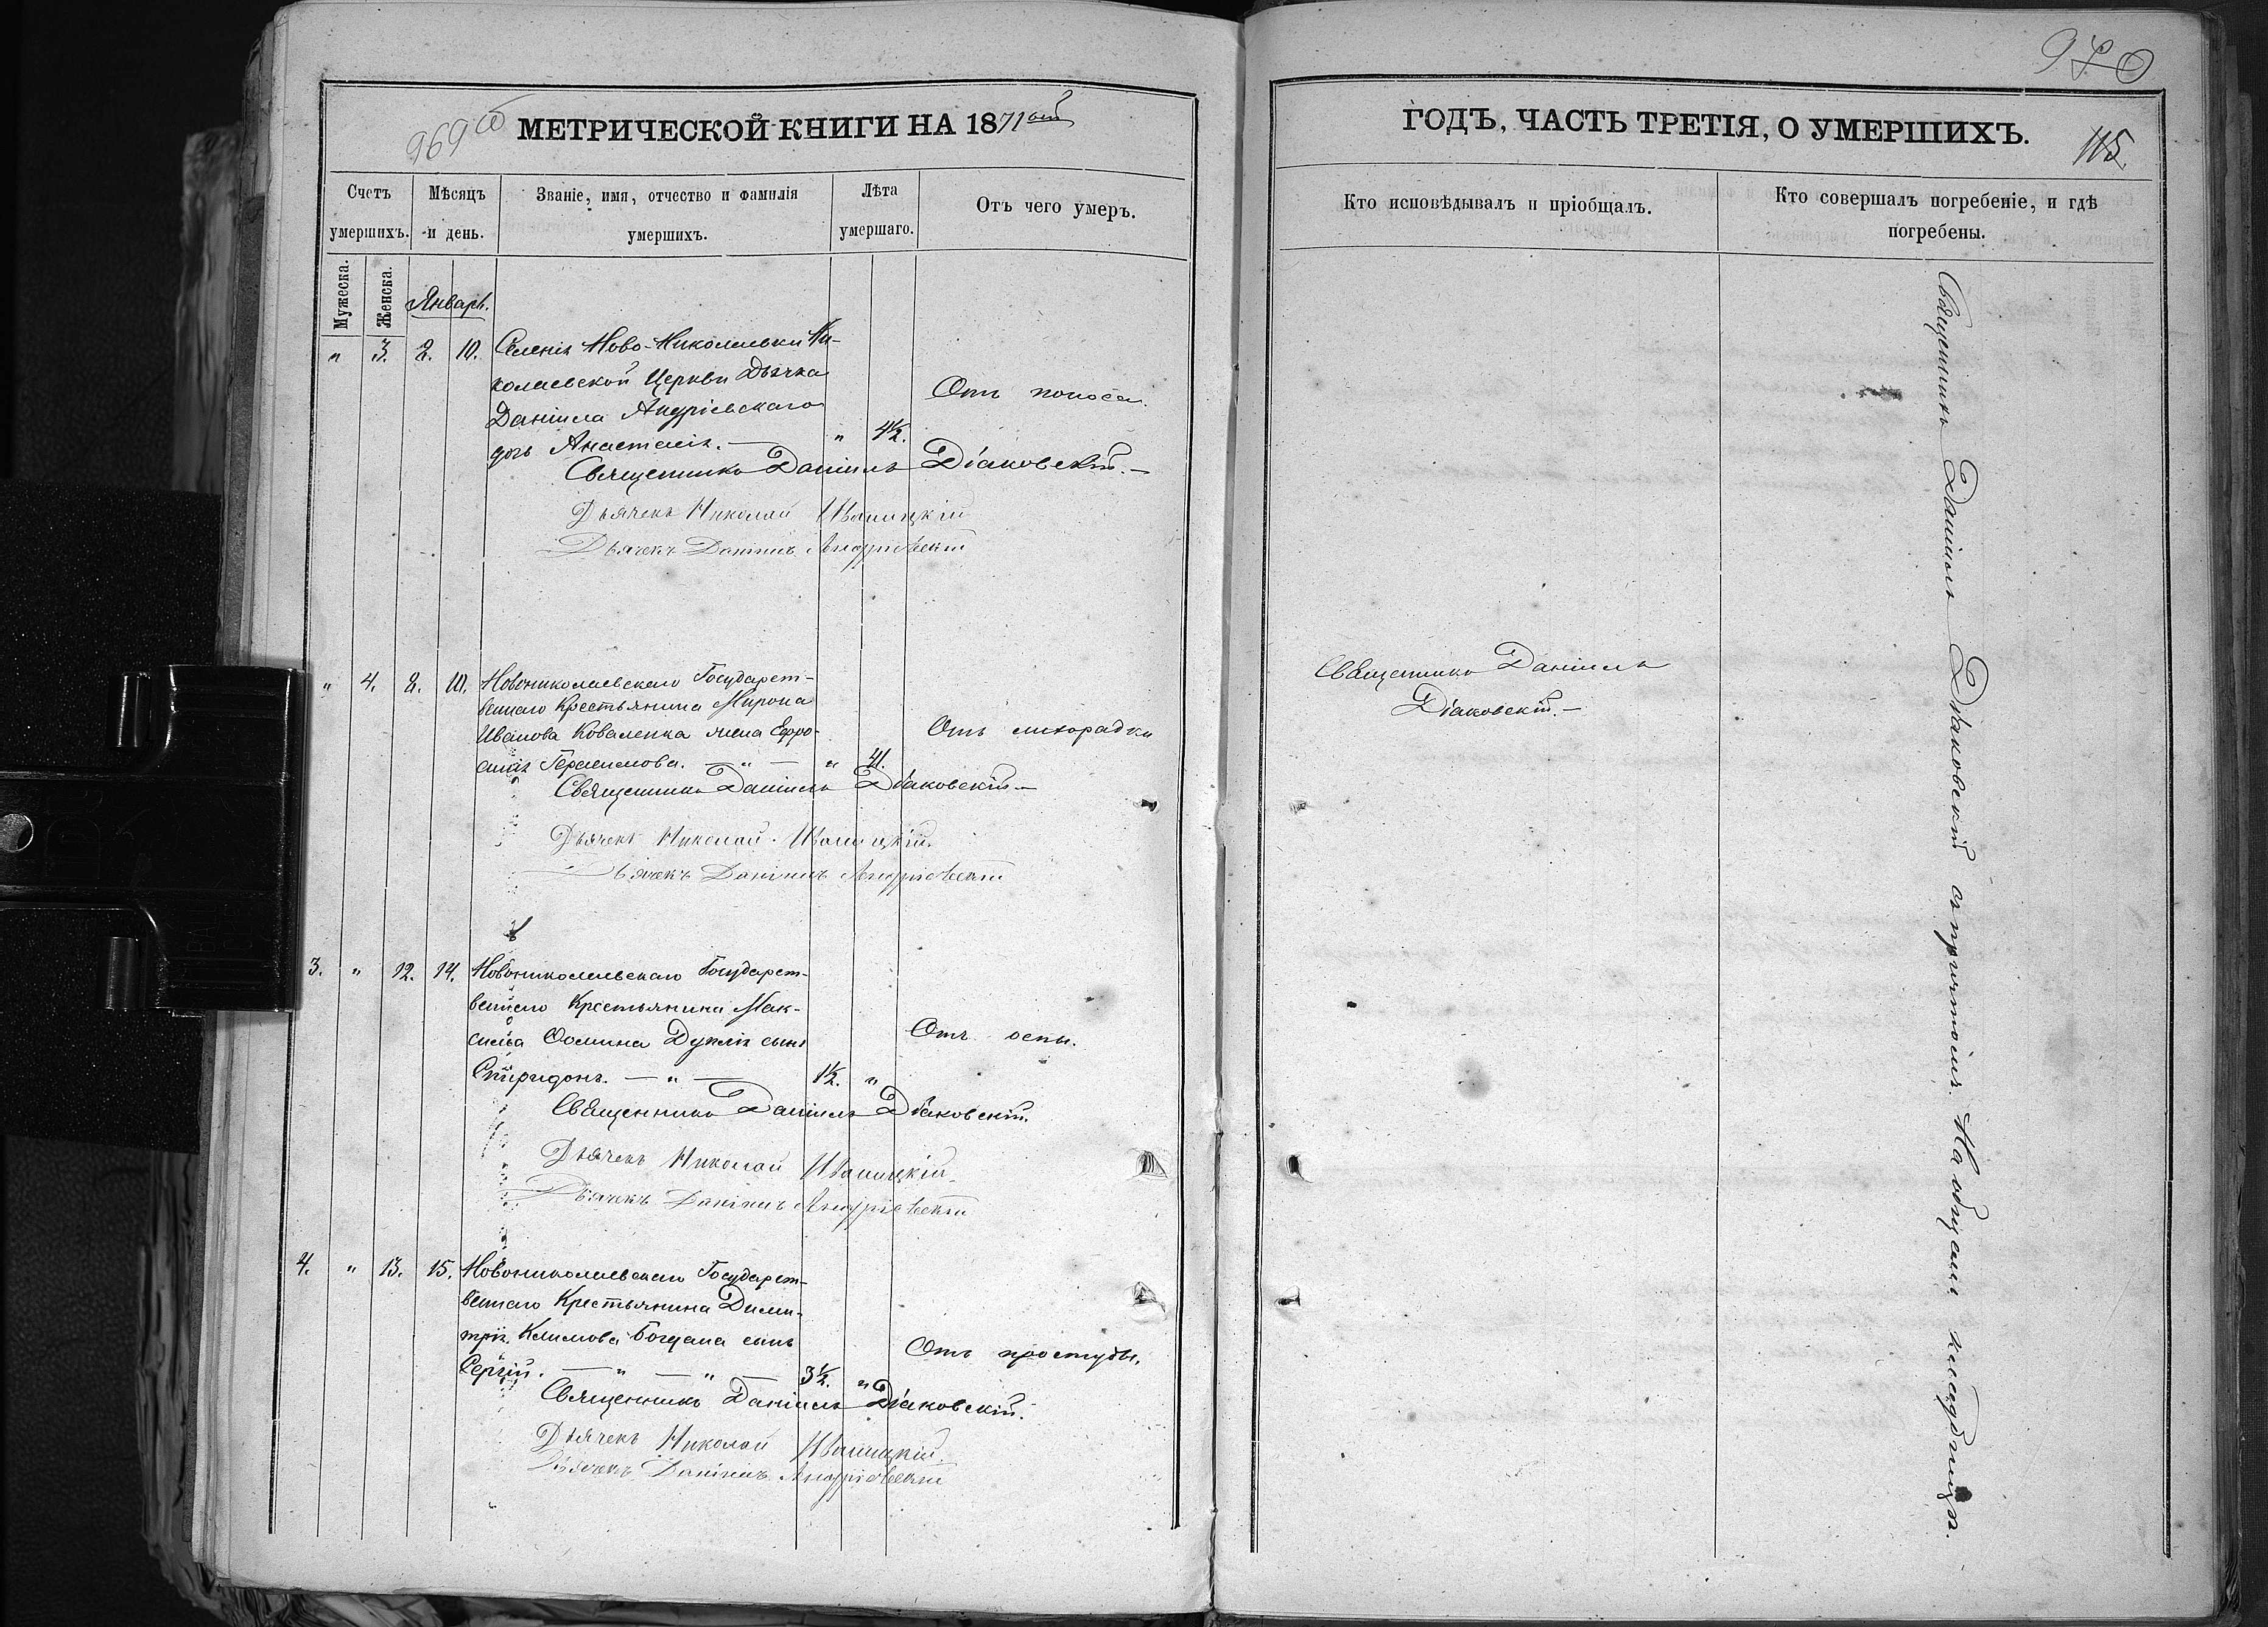 969 об
МЕТРИЧЕСКОЙ КНИГИ НА 1871ой
Счетъ умершихъ.
Мѣсяцъ и день.
Званіе, имя, отчество и фамилія умершихъ.
Лѣта умершаго.
Отъ чего умеръ.
Мужеска.
Женска.
Январь.
" 3. 8. 10. Селенія Ново-Николаевки Ни-
колаевской Церкви Дьячка
Даніила Андріевскаго Отъ поноса.
дочь Анастасія. — " 4½.
Священникъ Даніилъ Діаковскій. —
Дьячекъ Николай Иваницкій
Дьячекъ Даніилъ Андріевскій
" 4. 8. 10. Новониколаевскаго Государст-
веннаго Крестьянина Мирона
Иванова Коваленка жена Евфро- Отъ лихорадки
синія Герасимова. — " — " 41.
Священникъ Даніилъ Діаковскій —
Дьячекъ Николай Иваницкій.
Дьячекъ Даніилъ Андріевскій
3. " 12. 14. Новониколаевскаго Государст-
веннаго Крестьянина Мак-
сима Ѳомина Дуплія сынъ Отъ оспы.
Спиридонъ. — " — 1½. "
Священникъ Даніилъ Діаковскій.
Дьячекъ Николай Иваницкій.
Дьячекъ Даніилъ Андріевскій
4. " 13. 15. Новониколаевскаго Государст-
веннаго Крестьянина Дими-
трія Климова Богдана сынъ Отъ простуды.
Сергій. — " — " — 3½. "
Священникъ Даніилъ Діаковскій.
Дьячекъ Николай Иваницкій.
Дьячекъ Даніилъ Андріевскій
970
ГОДЪ, ЧАСТЬ ТРЕТІЯ, О УМЕРШИХЪ.
115.
Кто исповѣдывалъ и пріобщалъ.
Кто совершалъ погребеніе, и гдѣ
погребены.
Священникъ Даніилъ
Діаковскій. —
Священникъ Даніилъ Діаковскій съ причтомъ. На общемъ кладбищѣ.